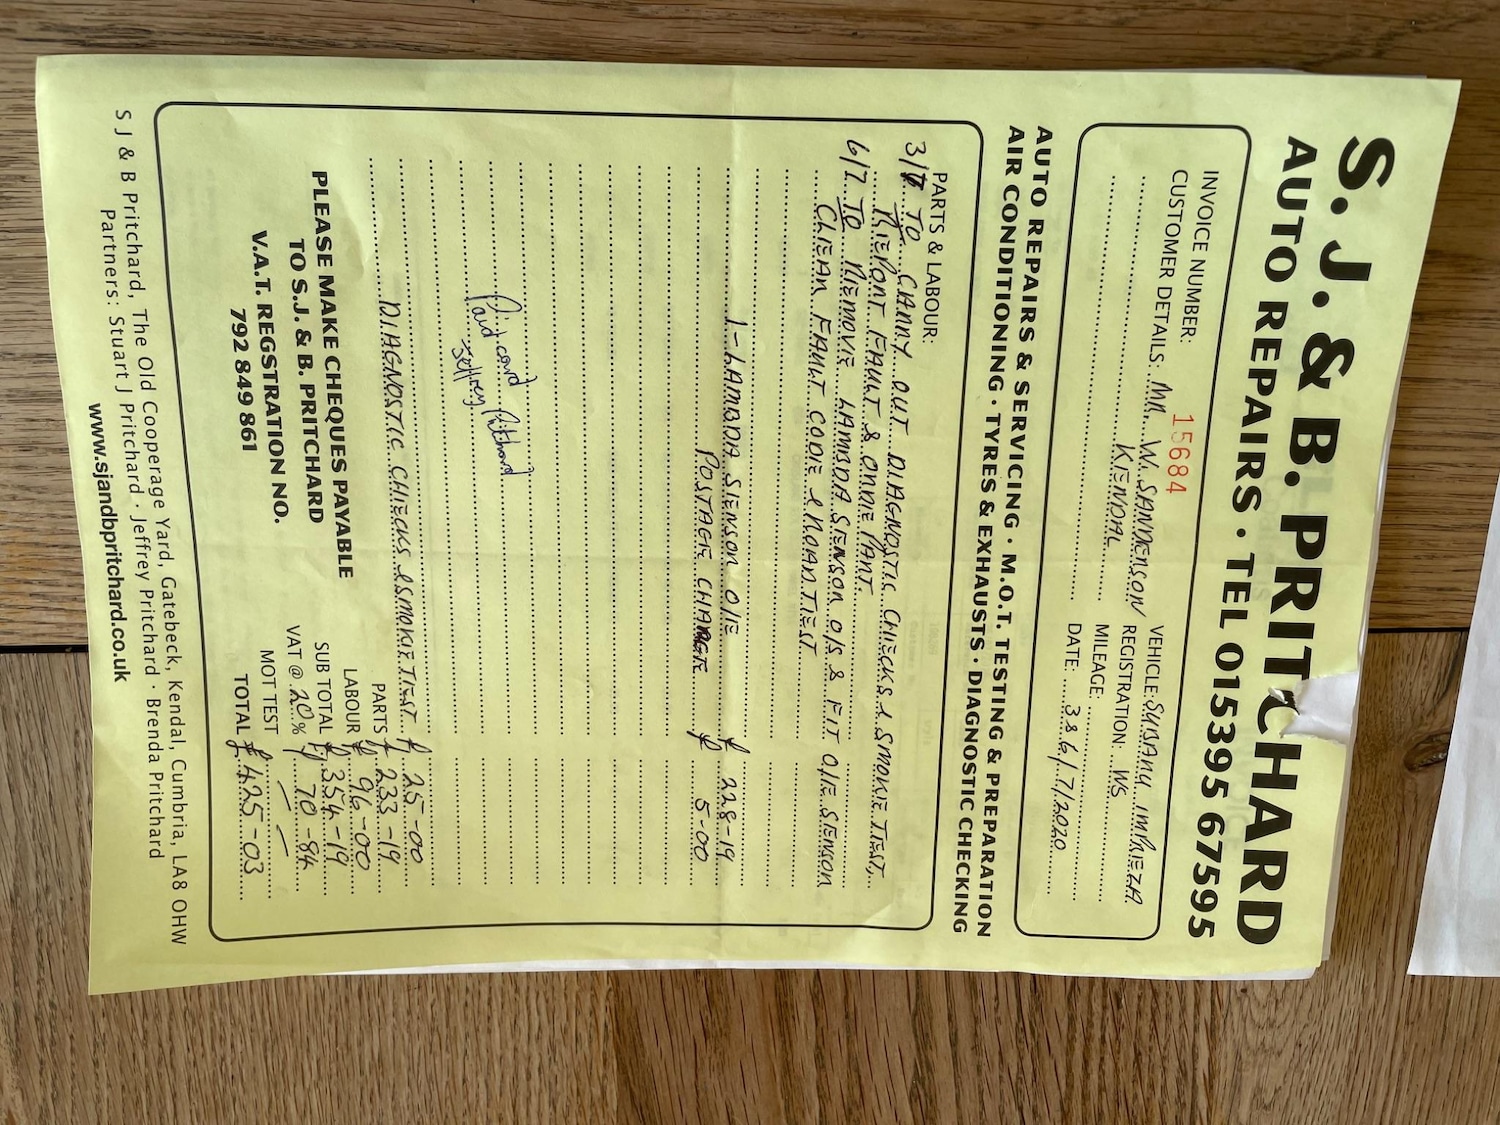 S. J. & B. PRITCHARD
AUTO REPAIRS · TEL 015395 67595
INVOICE NUMBER: 15684
CUSTOMER DETAILS: MR. W. SANDERSON
KENDAL
VEHICLE: SUBARU IMPREZA
REGISTRATION: WS
MILEAGE:
DATE: 3&6/7/2020
AUTO REPAIRS & SERVICING · M.O.T. TESTING & PREPARATION
AIR CONDITIONING · TYRES & EXHAUSTS · DIAGNOSTIC CHECKING
PARTS & LABOUR:
3/7 TO CARRY OUT DIAGNOSTIC CHECKS & SMOKE TEST,
REPORT FAULT & ORDER PART.
6/7 TO REMOVE LAMBDA SENSOR O/S & FIT O/E SENSOR
CLEAR FAULT CODE & ROAD TEST
1 - LAMBDA SENSOR O/E £ 228-19
POSTAGE CHARGE £ 5-00
Paid card
Jeffrey Pritchard
DIAGNOSTIC CHECKS & SMOKE TEST £ 25-00
PARTS £ 233-19
LABOUR £ 96-00
SUB TOTAL £ 354-19
VAT @ 20% £ 70-84
MOT TEST — —
TOTAL £ 425-03
PLEASE MAKE CHEQUES PAYABLE
TO S.J. & B. PRITCHARD
V.A.T. REGSTRATION NO.
792 849 861
S J & B Pritchard, The Old Cooperage Yard, Gatebeck, Kendal, Cumbria, LA8 0HW
Partners: Stuart J Pritchard · Jeffrey Pritchard · Brenda Pritchard
www.sjandbpritchard.co.uk